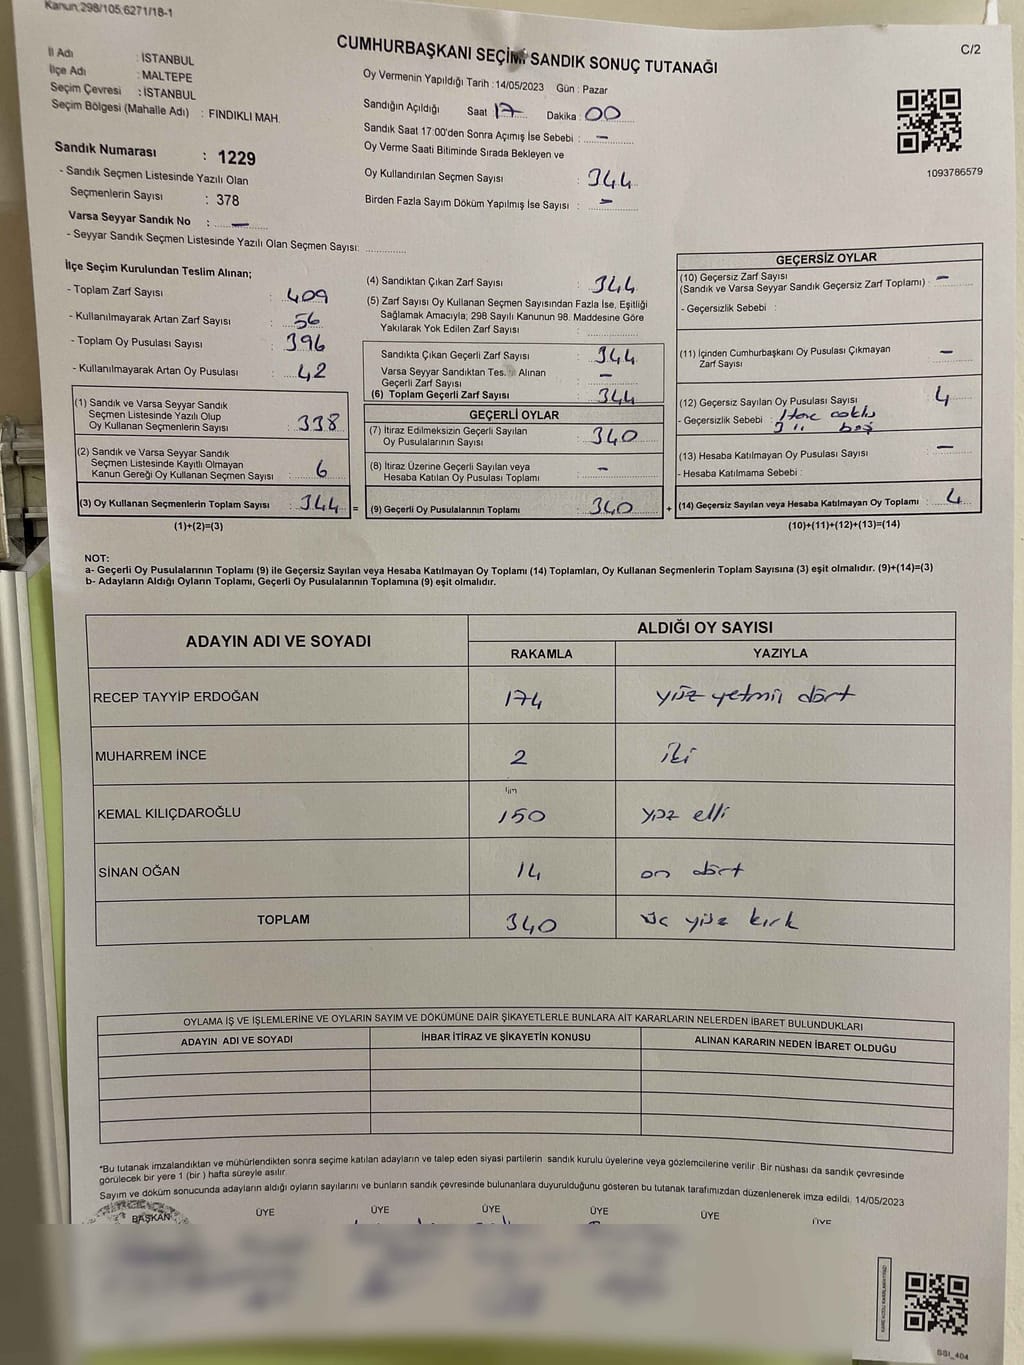 Kanun:298/105,6271/18-1
C/2
CUMHURBAŞKANI SEÇİMİ SANDIK SONUÇ TUTANAĞI
İl Adı : İSTANBUL
İlçe Adı : MALTEPE
Seçim Çevresi : İSTANBUL
Seçim Bölgesi (Mahalle Adı) : FINDIKLI MAH.
Oy Vermenin Yapıldığı Tarih : 14/05/2023 Gün : Pazar
Sandığın Açıldığı Saat 17 Dakika : 00
Sandık Saat 17:00'den Sonra Açımış İse Sebebi : –
Oy Verme Saati Bitiminde Sırada Bekleyen ve
Oy Kullandırılan Seçmen Sayısı : 344
Birden Fazla Sayım Döküm Yapılmış İse Sayısı : –
1093786579
Sandık Numarası : 1229
- Sandık Seçmen Listesinde Yazılı Olan
Seçmenlerin Sayısı : 378
Varsa Seyyar Sandık No : –
- Seyyar Sandık Seçmen Listesinde Yazılı Olan Seçmen Sayısı:
İlçe Seçim Kurulundan Teslim Alınan;
- Toplam Zarf Sayısı : 409
- Kullanılmayarak Artan Zarf Sayısı : 56
- Toplam Oy Pusulası Sayısı : 396
- Kullanılmayarak Artan Oy Pusulası : 42
(1) Sandık ve Varsa Seyyar Sandık
Seçmen Listesinde Yazılı Olup
Oy Kullanan Seçmenlerin Sayısı : 338
(2) Sandık ve Varsa Seyyar Sandık
Seçmen Listesinde Kayıtlı Olmayan
Kanun Gereği Oy Kullanan Seçmen Sayısı : 6
(3) Oy Kullanan Seçmenlerin Toplam Sayısı : 344 =
(1)+(2)=(3)
(4) Sandıktan Çıkan Zarf Sayısı : 344
(5) Zarf Sayısı Oy Kullanan Seçmen Sayısından Fazla İse, Eşitliği
Sağlamak Amacıyla; 298 Sayılı Kanunun 98. Maddesine Göre
Yakılarak Yok Edilen Zarf Sayısı :
Sandıkta Çıkan Geçerli Zarf Sayısı : 344
Varsa Seyyar Sandıktan Tes. Alınan
Geçerli Zarf Sayısı : –
(6) Toplam Geçerli Zarf Sayısı : 344
GEÇERLİ OYLAR
(7) İtiraz Edilmeksizin Geçerli Sayılan
Oy Pusulalarının Sayısı : 340
(8) İtiraz Üzerine Geçerli Sayılan veya
Hesaba Katılan Oy Pusulası Toplamı : –
(9) Geçerli Oy Pusulalarının Toplamı : 340 +
GEÇERSİZ OYLAR
(10) Geçersiz Zarf Sayısı
(Sandık ve Varsa Seyyar Sandık Geçersiz Zarf Toplamı) : –
- Geçersizlik Sebebi :
(11) İçinden Cumhurbaşkanı Oy Pusulası Çıkmayan
Zarf Sayısı : –
(12) Geçersiz Sayılan Oy Pusulası Sayısı : 4
- Geçersizlik Sebebi : 1 tane çoklu
3 " boş
(13) Hesaba Katılmayan Oy Pusulası Sayısı : –
- Hesaba Katılmama Sebebi :
(14) Geçersiz Sayılan veya Hesaba Katılmayan Oy Toplamı : 4
(10)+(11)+(12)+(13)=(14)
NOT:
a- Geçerli Oy Pusulalarının Toplamı (9) ile Geçersiz Sayılan veya Hesaba Katılmayan Oy Toplamı (14) Toplamları, Oy Kullanan Seçmenlerin Toplam Sayısına (3) eşit olmalıdır. (9)+(14)=(3)
b- Adayların Aldığı Oyların Toplamı, Geçerli Oy Pusulalarının Toplamına (9) eşit olmalıdır.
ADAYIN ADI VE SOYADI ALDIĞI OY SAYISI
RAKAMLA YAZIYLA
RECEP TAYYİP ERDOĞAN 174 yüz yetmiş dört
MUHARREM İNCE 2 iki
KEMAL KILIÇDAROĞLU 150 yüz elli
SİNAN OĞAN 14 on dört
TOPLAM 340 üç yüz kırk
OYLAMA İŞ VE İŞLEMLERİNE VE OYLARIN SAYIM VE DÖKÜMÜNE DAİR ŞİKAYETLERLE BUNLARA AİT KARARLARIN NELERDEN İBARET BULUNDUKLARI
ADAYIN ADI VE SOYADI İHBAR İTİRAZ VE ŞİKAYETİN KONUSU ALINAN KARARIN NEDEN İBARET OLDUĞU
*Bu tutanak imzalandıktan ve mühürlendikten sonra seçime katılan adayların ve talep eden siyasi partilerin sandık kurulu üyelerine veya gözlemcilerine verilir. Bir nüshası da sandık çevresinde
görülecek bir yere 1 (bir ) hafta süreyle asılır.
Sayım ve döküm sonucunda adayların aldığı oyların sayılarını ve bunların sandık çevresinde bulunanlara duyurulduğunu gösteren bu tutanak tarafımızdan düzenlenerek imza edildi. 14/05/2023
BAŞKAN ÜYE ÜYE ÜYE ÜYE ÜYE ÜYE
SSI_404